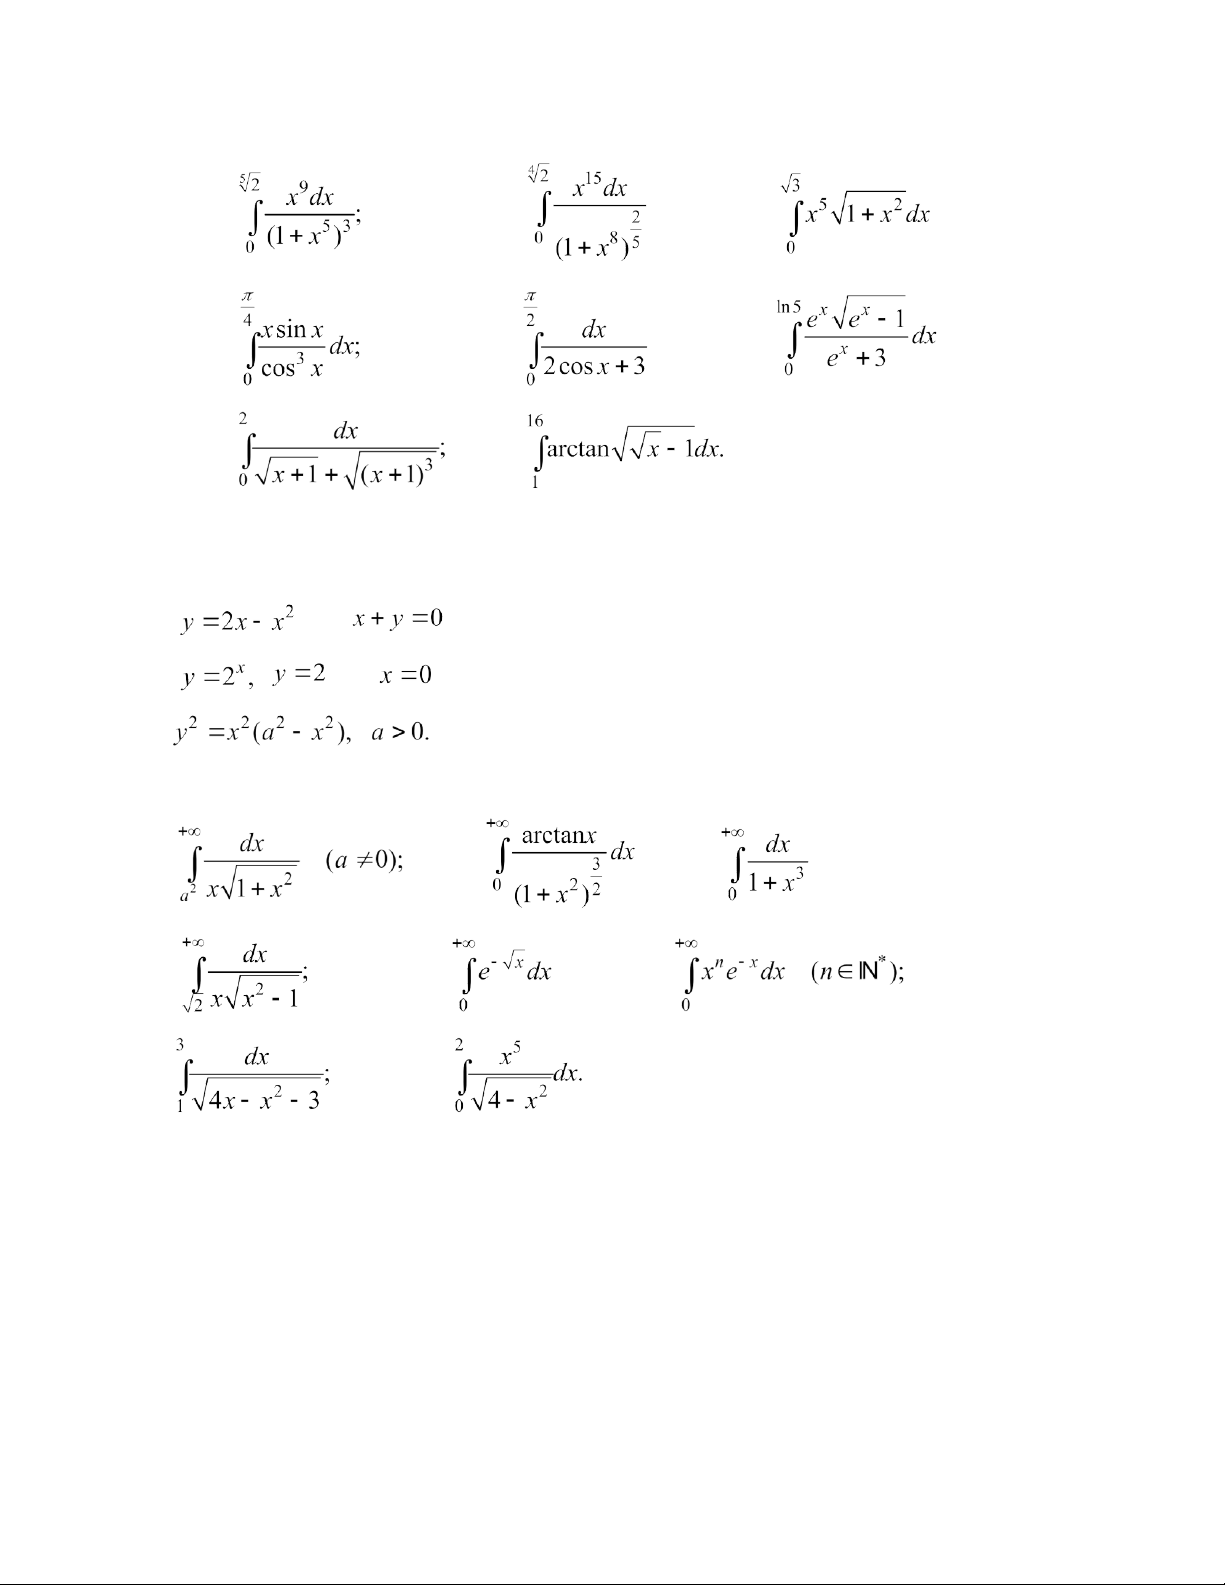 $\int_{0}^{\sqrt[5]{2}} \frac{x^9 dx}{(1+x^5)^3};$ $\int_{0}^{\sqrt[4]{2}} \frac{x^{15} dx}{(1+x^8)^{\frac{2}{5}}}$ $\int_{0}^{\sqrt{3}} x^5 \sqrt{1+x^2} dx$
$\int_{0}^{\frac{\pi}{4}} \frac{x \sin x}{\cos^3 x} dx;$ $\int_{0}^{\frac{\pi}{2}} \frac{dx}{2\cos x + 3}$ $\int_{0}^{\ln 5} \frac{e^x \sqrt{e^x - 1}}{e^x + 3} dx$
$\int_{0}^{2} \frac{dx}{\sqrt{x+1} + \sqrt{(x+1)^3}};$ $\int_{1}^{16} \arctan \sqrt{\sqrt{x} - 1} dx.$
$y = 2x - x^2$ $x + y = 0$
$y = 2^x,$ $y = 2$ $x = 0$
$y^2 = x^2(a^2 - x^2),$ $a > 0.$
$\int_{a^2}^{+\infty} \frac{dx}{x\sqrt{1+x^2}}$ $(a \neq 0);$ $\int_{0}^{+\infty} \frac{\arctan x}{(1+x^2)^{\frac{3}{2}}} dx$ $\int_{0}^{+\infty} \frac{dx}{1+x^3}$
$\int_{\sqrt{2}}^{+\infty} \frac{dx}{x\sqrt{x^2-1}};$ $\int_{0}^{+\infty} e^{-\sqrt{x}} dx$ $\int_{0}^{+\infty} x^n e^{-x} dx$ $(n \in \mathbb{N}^*);$
$\int_{1}^{3} \frac{dx}{\sqrt{4x - x^2 - 3}};$ $\int_{0}^{2} \frac{x^5}{\sqrt{4-x^2}} dx.$